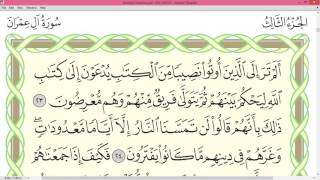 سُورَةُ آلِ عِمْرَانَ
الجُزْءُ الثَّالِثُ
أَلَمْ تَرَ إِلَى الَّذِينَ أُوتُوا نَصِيبًا مِنَ الْكِتَابِ يُدْعَوْنَ إِلَى كِتَابِ
اللَّهِ لِيَحْكُمَ بَيْنَهُمْ ثُمَّ يَتَوَلَّى فَرِيقٌ مِنْهُمْ وَهُمْ مُعْرِضُونَ ٢٣
ذَلِكَ بِأَنَّهُمْ قَالُوا لَنْ تَمَسَّنَا النَّارُ إِلَّا أَيَّامًا مَعْدُودَاتٍ
وَغَرَّهُمْ فِي دِينِهِمْ مَا كَانُوا يَفْتَرُونَ ٢٤ فَكَيْفَ إِذَا جَمَعْنَاهُمْ